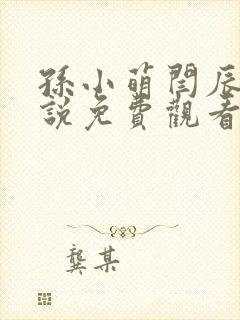 孫小萌閆辰
説免費觀看
龔某